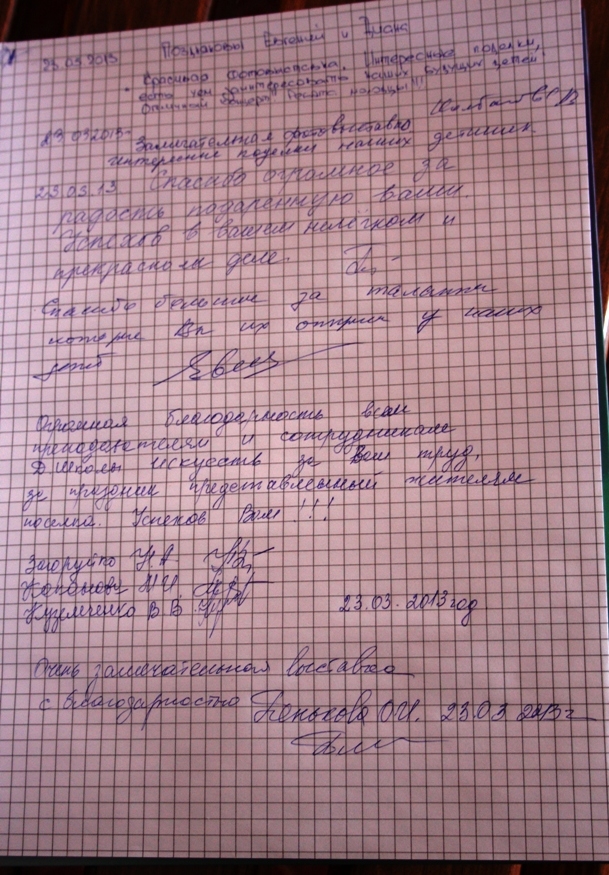 23.03.2013 Поздняковы Евгений и Диана
Красивая фотовыставка, Интересные поделки,
есть чем заинтересовать наших будущих детей!
Отличный концерт! Ребята молодцы!!!
23.03.2013г. Замечательная фотовыставка
интересные поделки наших детишек
23.03.13 Спасибо огромное за
радость подаренную вами.
Успехов в вашем нелёгком и
прекрасном деле.
Спасибо большое за таланты
которые Вы их открыли у наших
детей
Огромная благодарность всем
преподавателям и сотрудникам
ДШколы искусств за Ваш труд,
за праздник представленный жителям
посёлка. Успехов Вам!!!
Загруйко Н.А.
М.И.
Кузьменко В.В.
23.03.2013 год
Очень замечательная выставка
с благодарностью Пенькова О.И. 23.03 2013 г